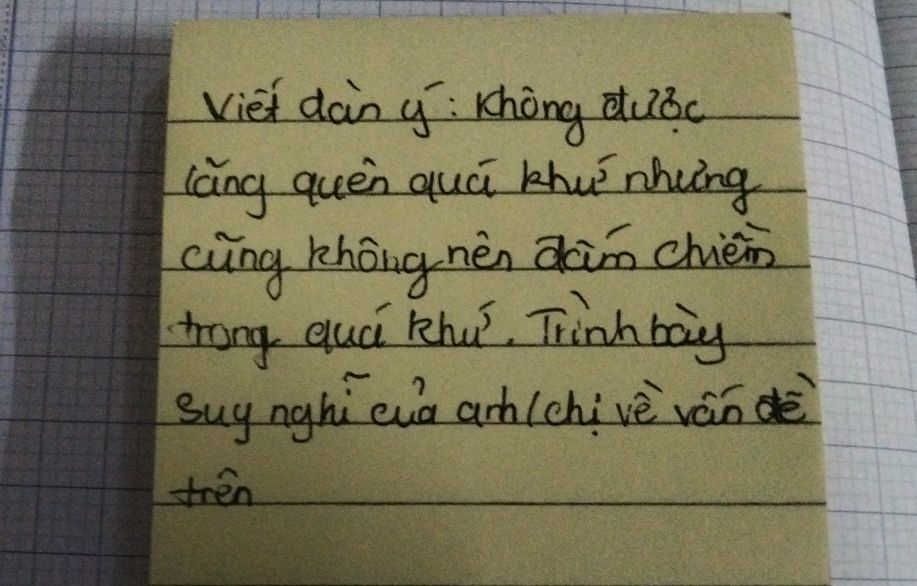 Viết dàn ý: Không được
lãng quên quá khứ nhưng
cũng không nên đắm chiềm
trong quá khứ. Trình bày
suy nghĩ của anh/chị về vấn đề
trên